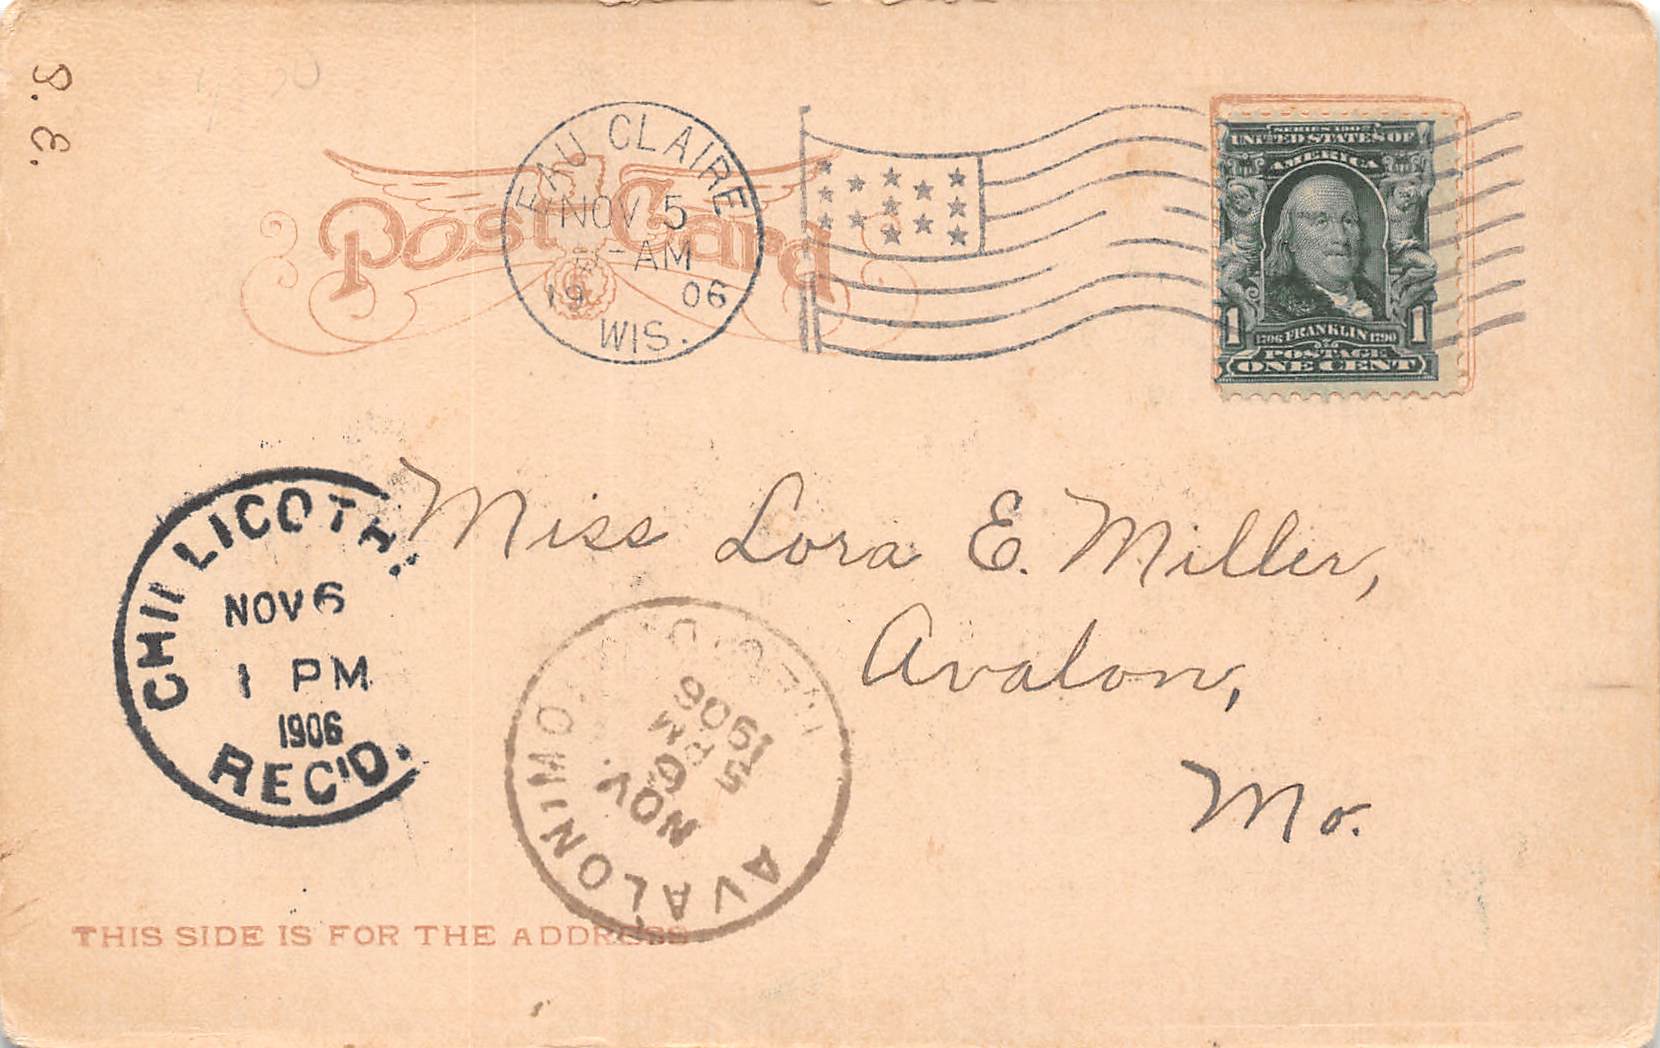 S. E.
Post Card
EAU CLAIRE
NOV 5
-AM
19 06
WIS.
SERIES 1902
UNITED STATES OF
AMERICA
1 1
1706 FRANKLIN 1790
POSTAGE
ONE CENT
Miss Lora E. Miller,
Avalon,
Mo.
CHILLICOTH
NOV 6
1 PM
1906
REC'D.
AVALON MO.
NOV.
6
5 PM
1906
THIS SIDE IS FOR THE ADDRESS